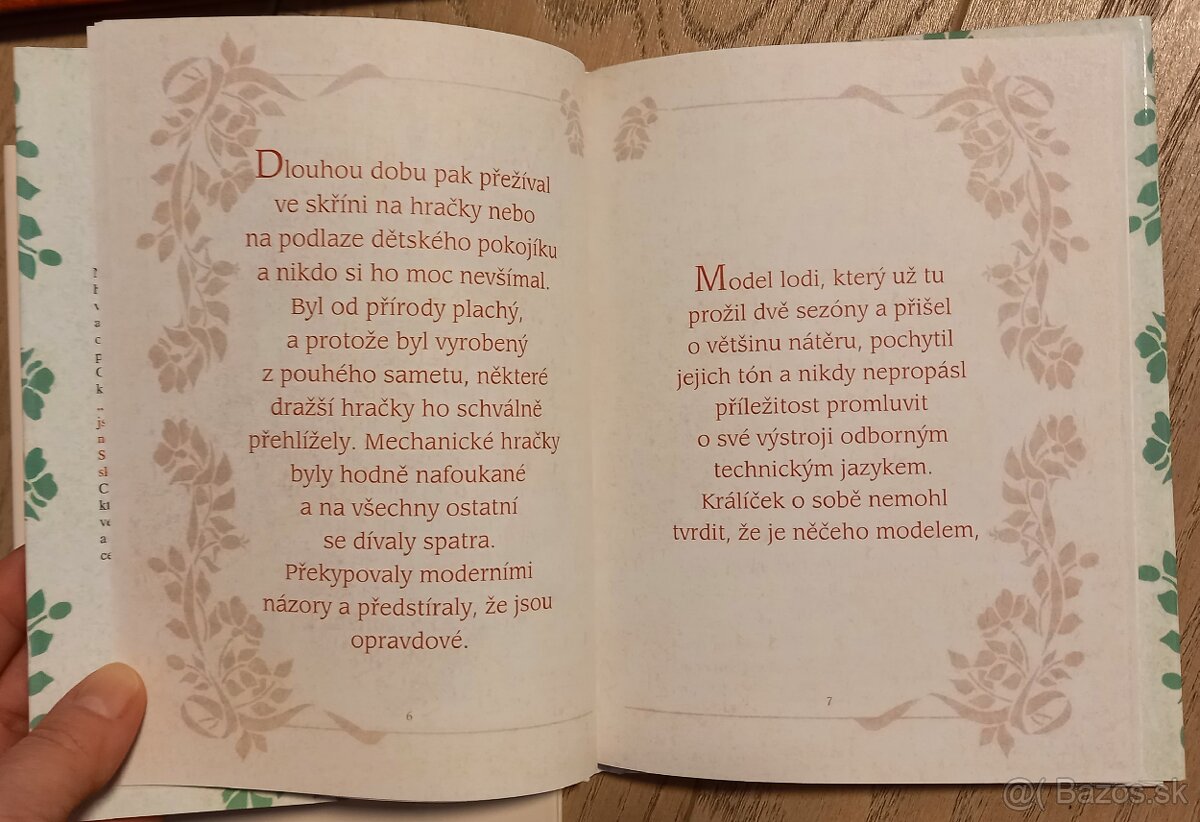 Dlouhou dobu pak přežíval
ve skříni na hračky nebo
na podlaze dětského pokojíku
a nikdo si ho moc nevšímal.
Byl od přírody plachý,
a protože byl vyrobený
z pouhého sametu, některé
dražší hračky ho schválně
přehlížely. Mechanické hračky
byly hodně nafoukané
a na všechny ostatní
se dívaly spatra.
Překypovaly moderními
názory a předstíraly, že jsou
opravdové.
6
Model lodi, který už tu
prožil dvě sezóny a přišel
o většinu nátěru, pochytil
jejich tón a nikdy nepropásl
příležitost promluvit
o své výstroji odborným
technickým jazykem.
Králíček o sobě nemohl
tvrdit, že je něčeho modelem,
7
@( Bazos.sk